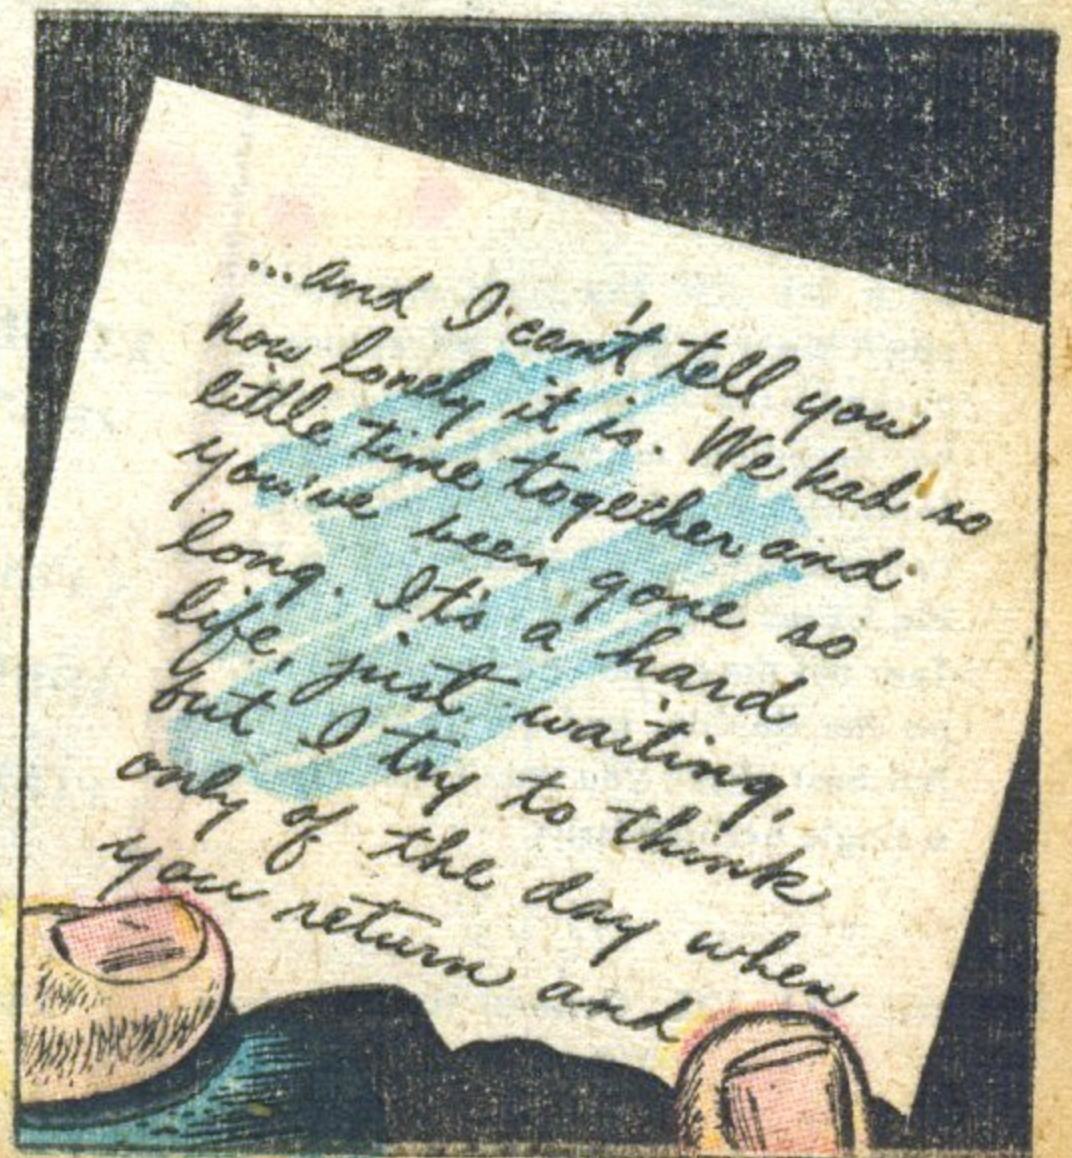 ...and I can't tell you
how lonely it is. We had so
little time together and
you've been gone so
long. It's a hard
life, just waiting,
but I try to think
only of the day when
you return and